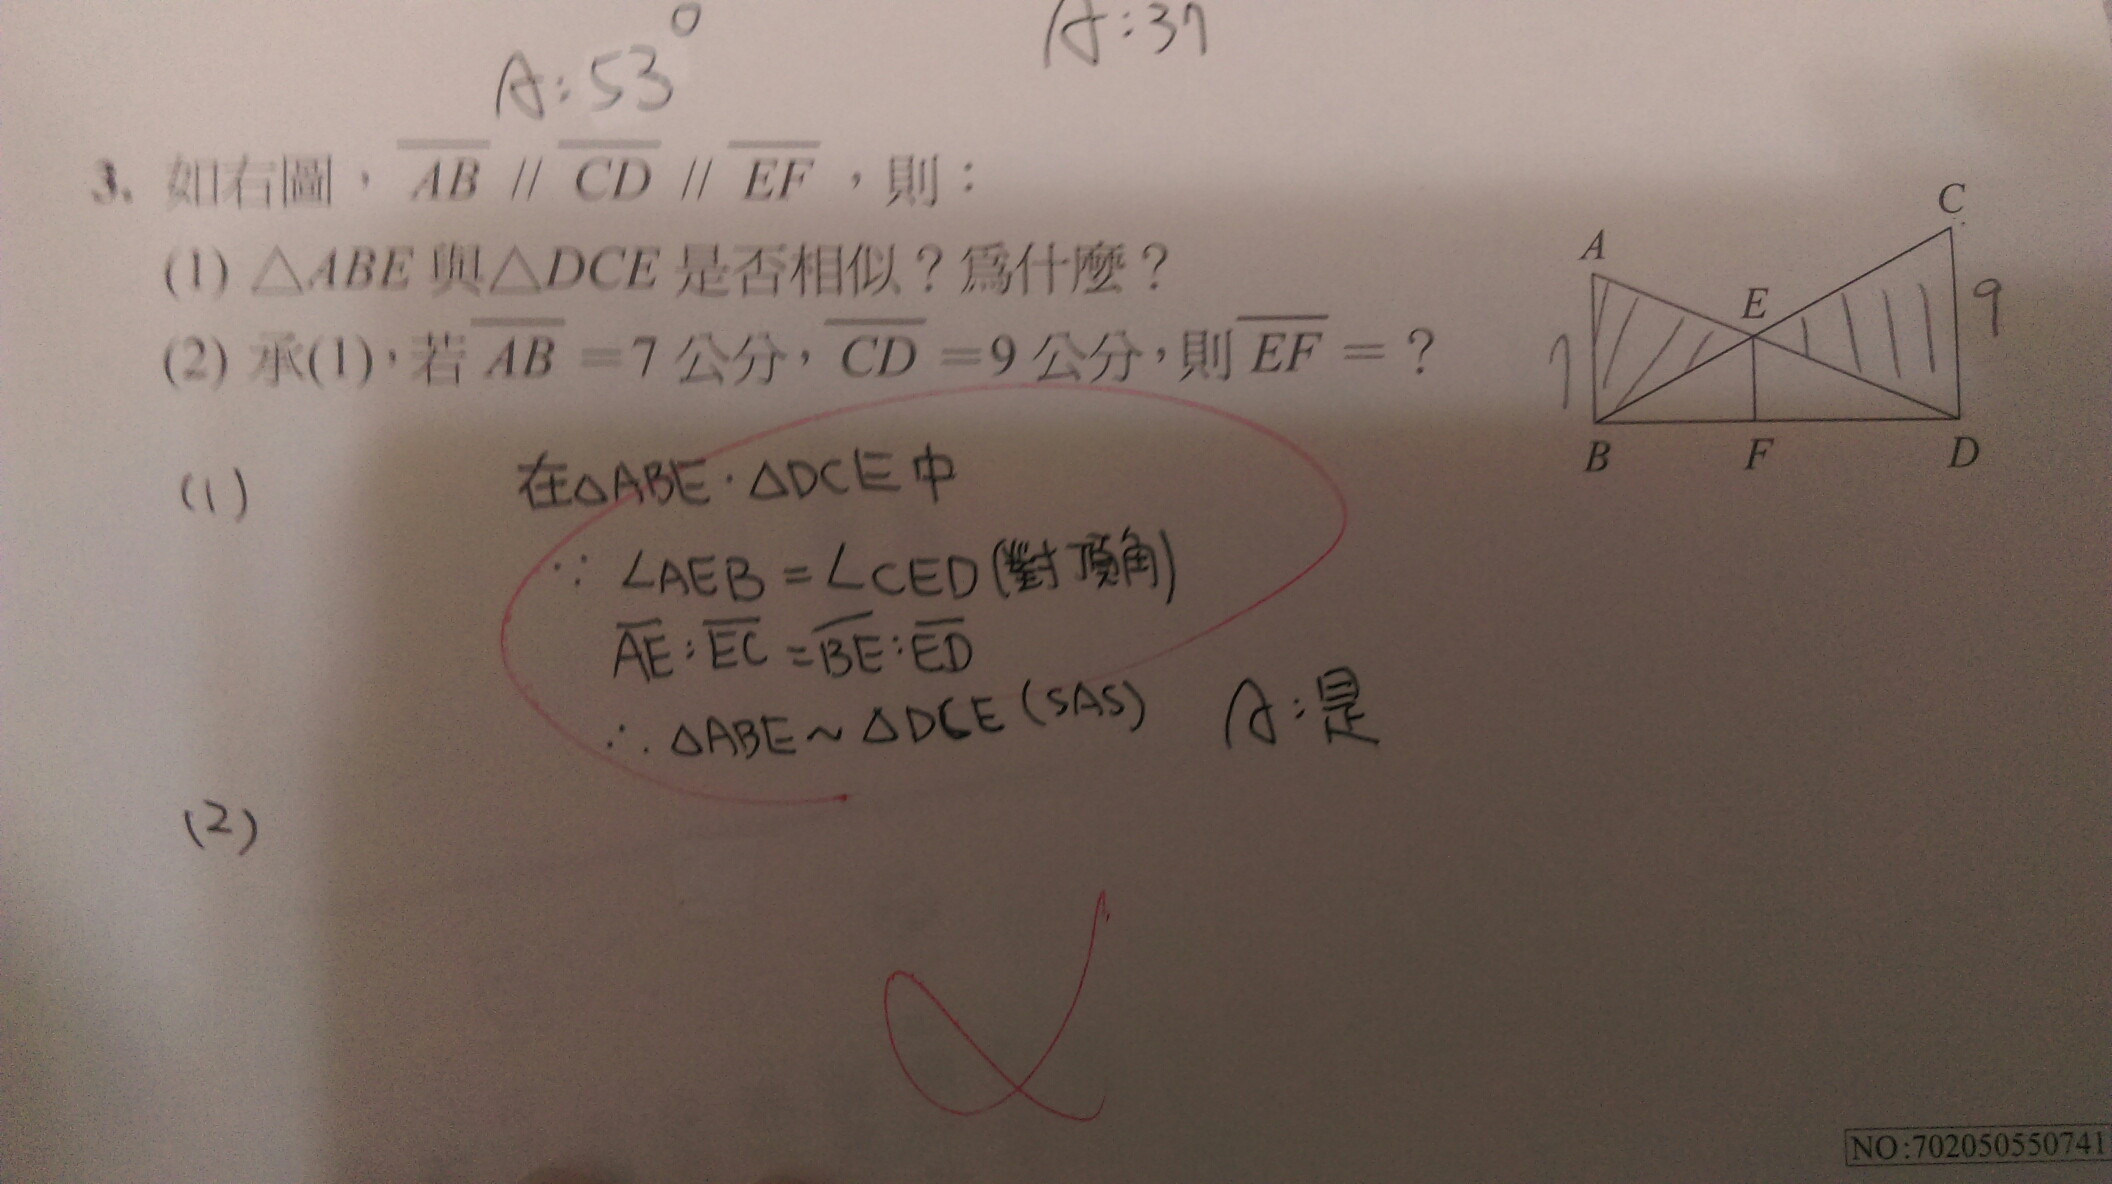 A:53°
A:37
3. 如右圖，AB // CD // EF，則：
(1) △ABE 與△DCE 是否相似？為什麼？
(2) 承(1)，若 AB = 7 公分，CD = 9 公分，則 EF = ？
A
C
E
7
9
B
F
D
(1) 在△ABE．△DCE中
∵ ∠AEB = ∠CED (對頂角)
AE : EC = BE : ED
∴ △ABE ~ △DCE (SAS) A:是
(2)
NO:702050550741